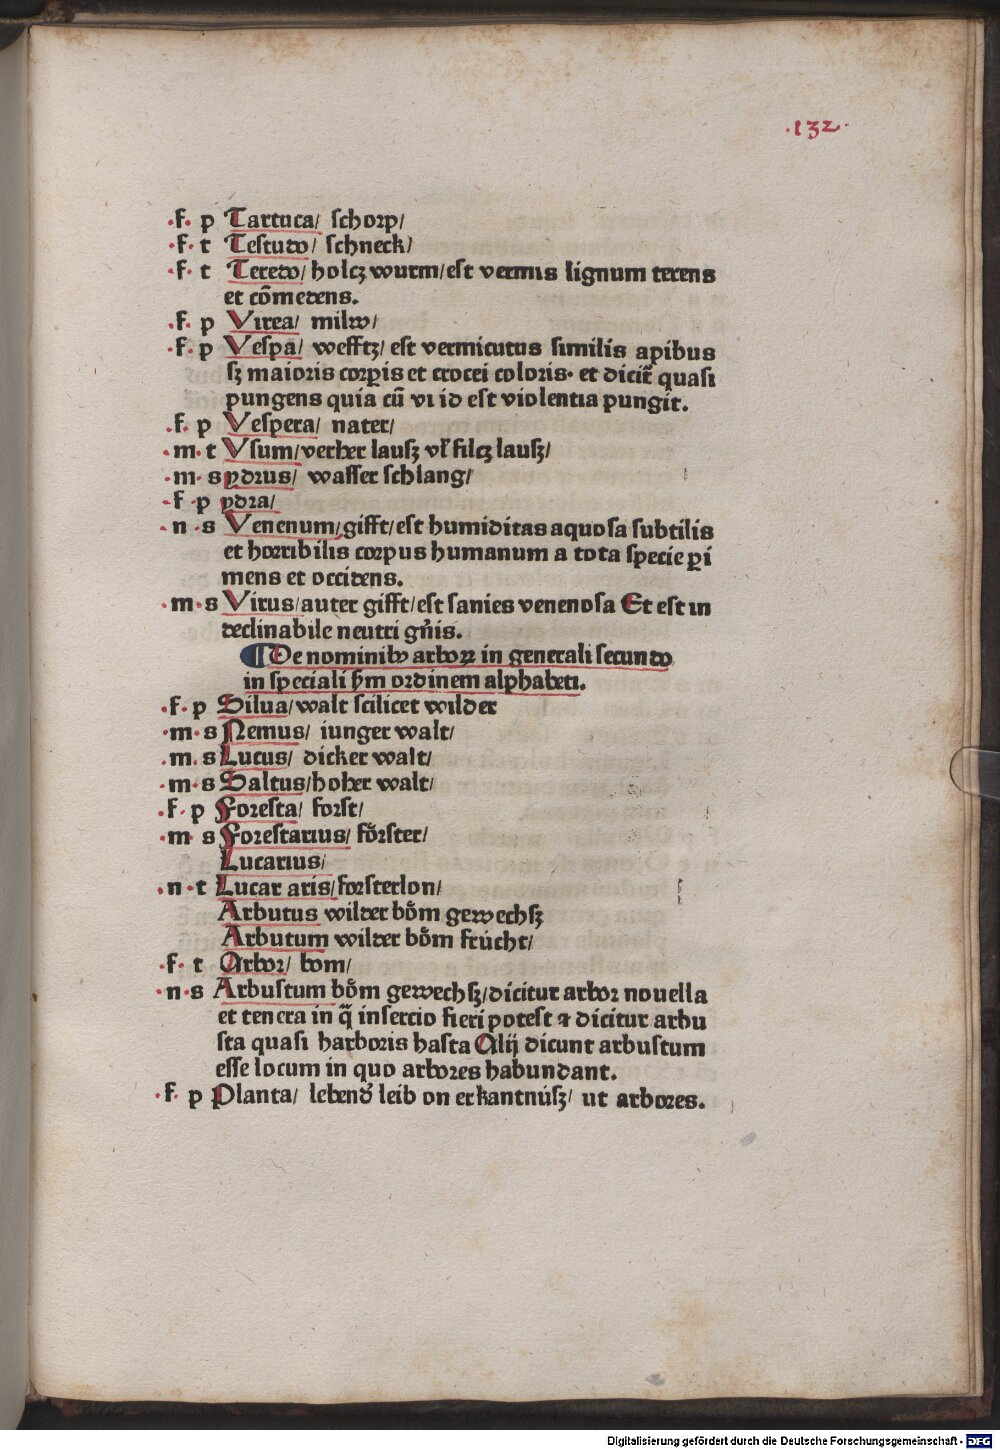 ·132·
·f· p Tartuca/ schorp/
·f· t Testudo/ schneck/
·f· t Teredo/ holcz wurm/ est vermis lignum terens
et cōmedens.
·f· p Virea/ milw/
·f· p Vespa/ wefftz/ est vermiculus similis apibus
sz maioris corpis et crocei coloris· et dicit̄ quasi
pungens quia cū vi id est violentia pungit.
·f· p Vespera/ nater/
·m· t Vsum/ verher lausz vl̕ filcz lausz/
·m· s ydrus/ wasser schlang/
·f· p ydra/
·n· s Venenum/ gifft/ est humiditas aquosa subtilis
et horribilis corpus humanum a tota specie ꝑi
mens et occidens.
·m· s Virus/ auter gifft/ est sanies venenosa Et est in
declinabile neutri gn̄is.
¶ De nominibꝰ arboꝝ in generali secundo
in speciali ẜm ordinem alphabeti.
·f· p Silua/ walt scilicet wilder
·m· s Nemus/ iunger walt/
·m· s Lucus/ dicker walt/
·m· s Saltus/ hoher walt/
·f· p Foresta/ forst/
·m· s Forestarius/ fo̊rster/
Lucarius/
·n· t Lucar aris/ forsterlon/
Arbutus wilder bo̊m gewechsz
Arbutum wilder bo̊m frúcht/
·f· t Arbor/ bom/
·n· s Arbustum bo̊m gewechsz/ dicitur arbor nouella
et tenera in q̄ insercio fieri potest ⁊ dicitur arbu
sta quasi harboris hasta Alij dicunt arbustum
esse locum in quo arbores habundant.
·f· p Planta/ lebend̕ leib on erkantnúsz/ ut arbores.
Digitalisierung gefördert durch die Deutsche Forschungsgemeinschaft - DFG